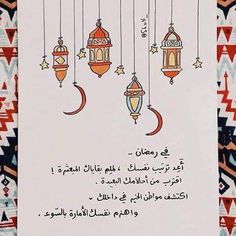 في رمضان -
أَعِد ترتيب نفسك ، لملِم بقاياك المبعثرة !
اقترب من أحلامك البعيدة .
اكتشف مواطن الخير في داخلك ~
واهزم نفسك الأمارة بالسّوء .